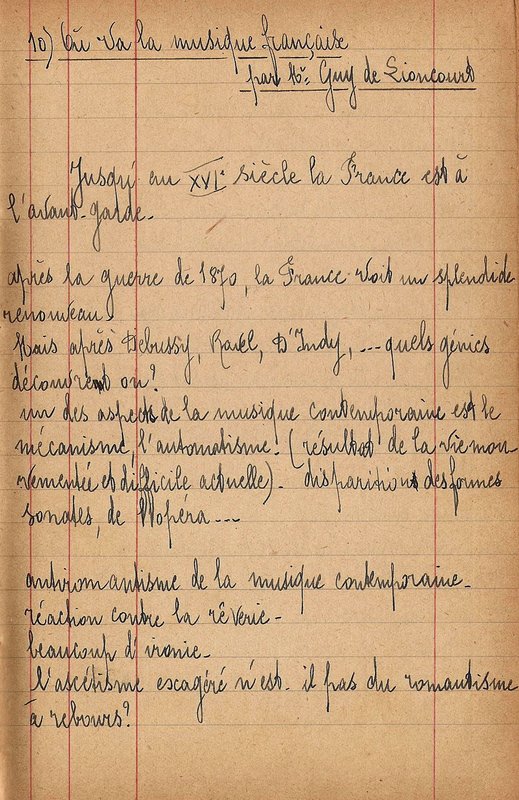 10) Où va la musique française
par Mr. Guy de Lioncourt
Jusqu'au XVIe siècle la France est à
l'avant-garde.
après la guerre de 1870, la France voit un splendide
renouveau.
Mais après Debussy, Ravel, D'Indy, ... quels génies
découvrent on?
un des aspects de la musique contemporaine est le
mécanisme, l'automatisme. (résultat de la vie mou
vementée et difficile actuelle). disparition des formes
sonates, de l'opéra ...
antiromantisme de la musique contemporaine.
réaction contre la rêverie.
beaucoup d'ironie.
l'ascétisme escagéré n'est-il pas du romantisme
à rebours?